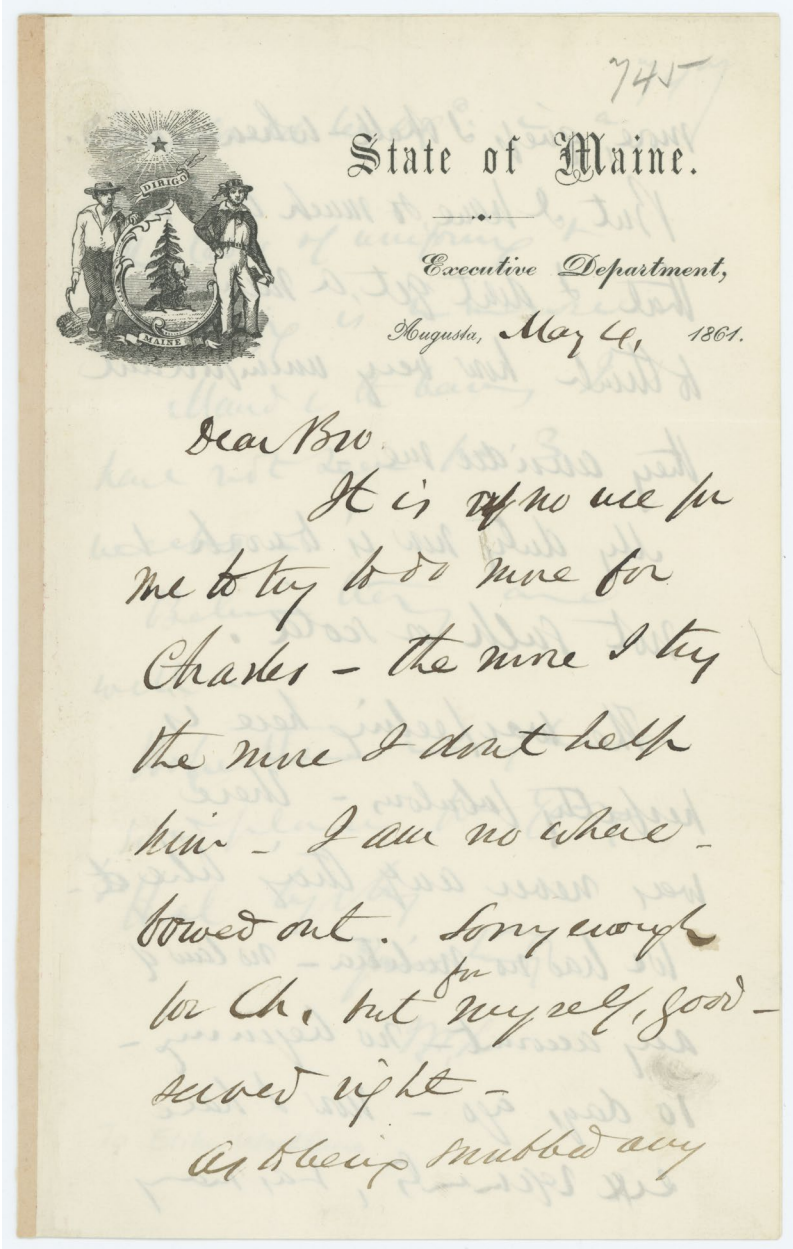 745
State of Maine.
DIRIGO
MAINE
Executive Department,
Augusta, May 4, 1861.
Dear Bro
It is of no use for
me to try to do more for
Charles – the more I try
the more I dont help
him – I am no where –
bowed out. Sorry enough
for Ch. but for myself, good –
served right –
As to being snubbed any